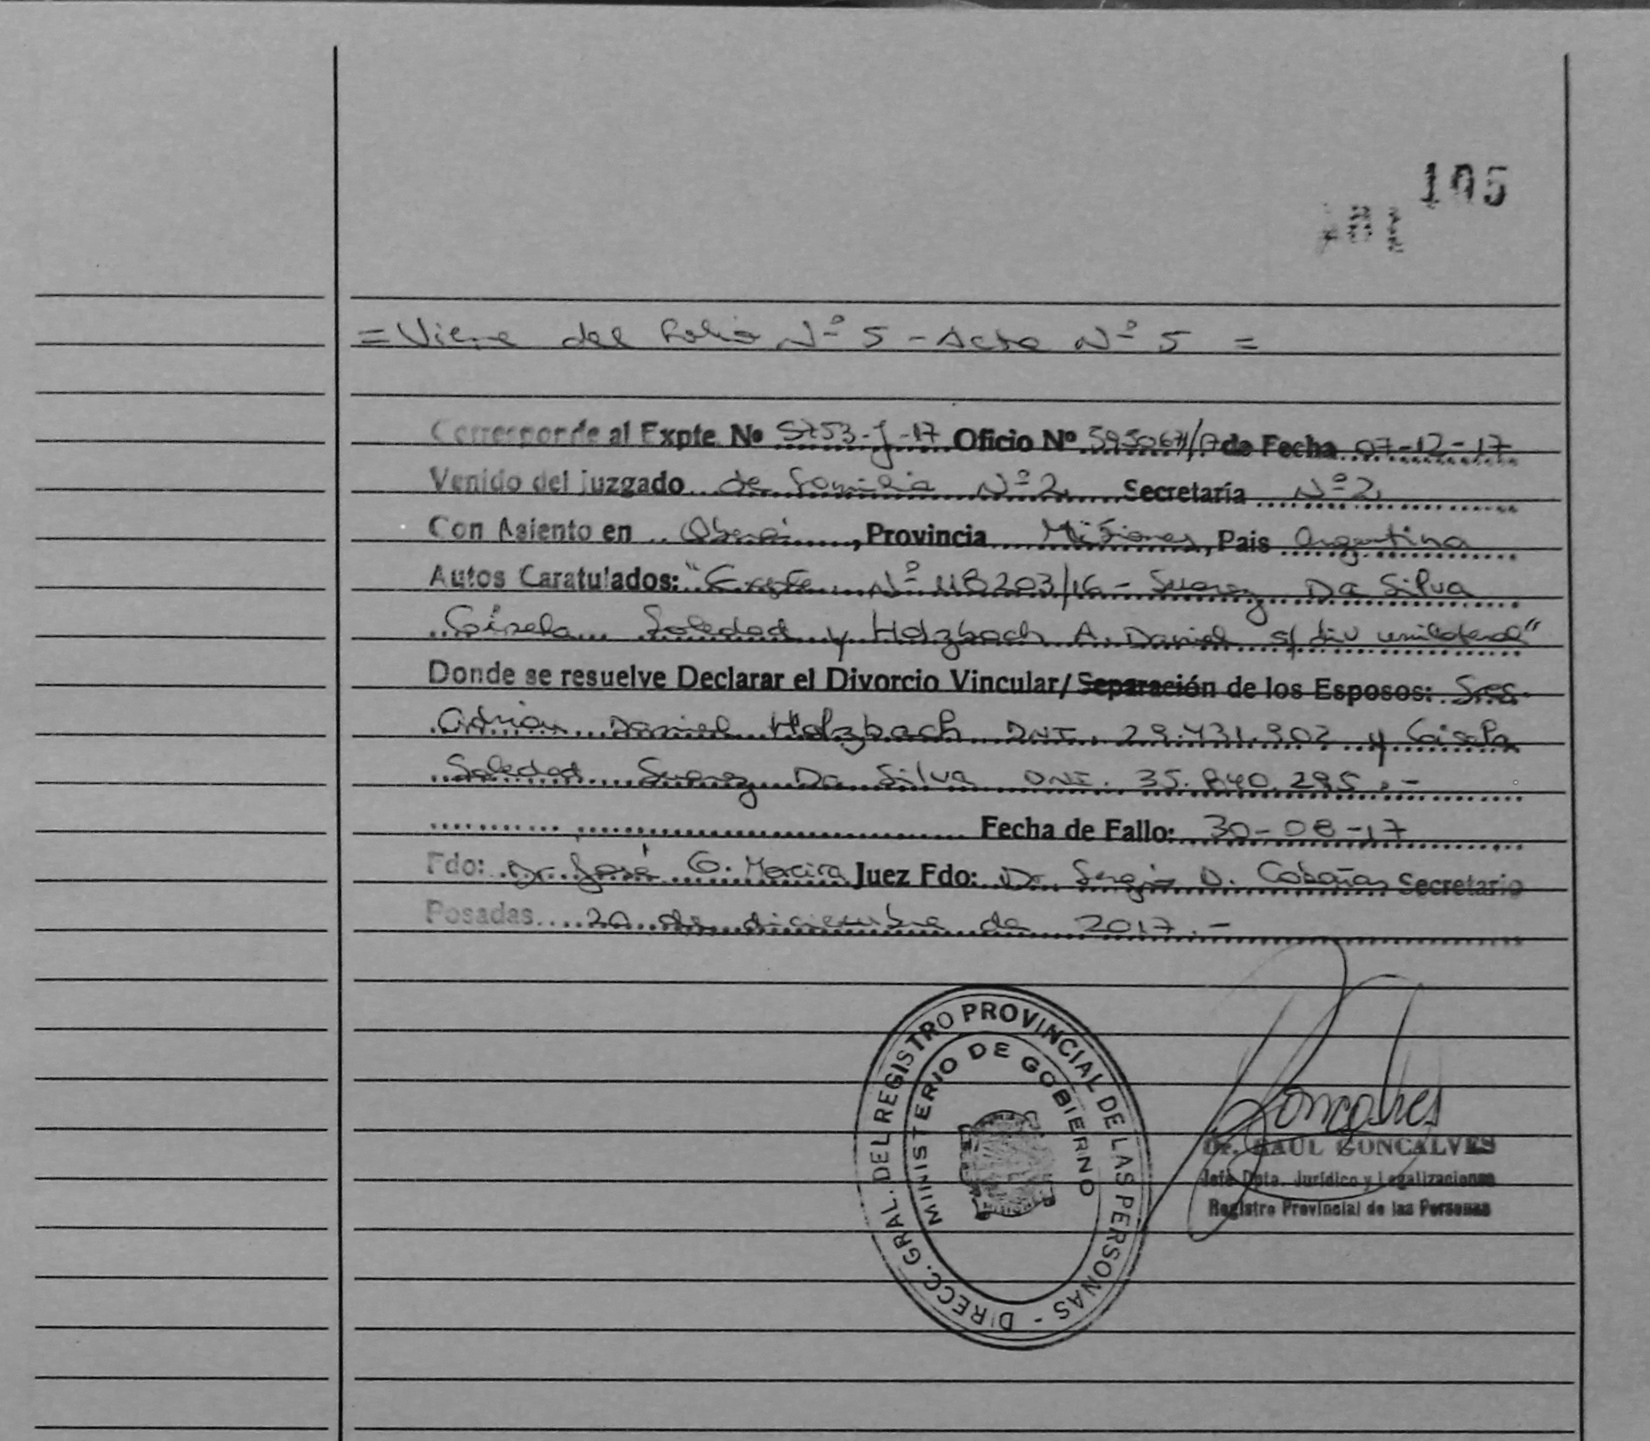 105
= Viene del folio Nº 5 - Acta Nº 5 =
Corresponde al Expte Nº 5753-J-17 Oficio Nº de Fecha 07-12-17
Venido del Juzgado de familia Nº 2, Secretaría Nº 2,
Con Asiento en Oberá, Provincia Misiones, Pais Argentina
Autos Caratulados: "Expte Nº 118203/16 - Suarez Da Silva
Gisela Soledad y Holzbach A. Daniel s/ div unilateral"
Donde se resuelve Declarar el Divorcio Vincular/ Separación de los Esposos: Sres.
Adrian Daniel Holzbach DNI. 29.431.902 y Gisela
Soledad Suarez Da Silva DNI. 35.840.295.-
Fecha de Fallo: 30-08-17
Fdo: Dr. José G. Juez Fdo: Dr. Sergio D. Secretario
Posadas 20 de diciembre de 2017.-
DIRECC. GRAL. DEL REGISTRO PROVINCIAL DE LAS PERSONAS -
MINISTERIO DE GOBIERNO
Gonçalves
Dr. RAUL GONCALVES
Jefe Dpto. Jurídico y Legalizaciones
Registro Provincial de las Personas